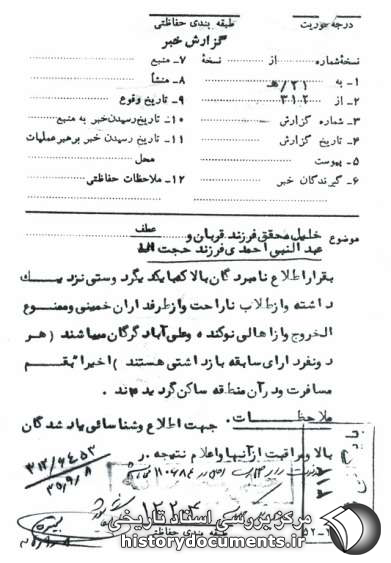 درجه فوریت
طبقه بندی حفاظتی
گزارش خبر
نسخه شماره از نسخهٔ
۱- به ۲۱/ هـ
۲- از ۳۱۲
۳- شماره گزارش
۴- تاریخ گزارش
۵- پیوست
۶- گیرندگان خبر
۷- منبع
۸- منشأ
۹- تاریخ وقوع
۱۰- تاریخ رسیدن خبر به منبع
۱۱- تاریخ رسیدن خبر برهبر عملیات
محل
۱۲- ملاحظات حفاظتی
موضوع خلیل محقق فرزند قربان و عطف
عبدالنبی احمدی فرزند حجت اله
بقرار اطلاع نامبردگان بالا که با یکدیگر دوستی نزدیک
داشته و از طلاب ناراحت و از طرفداران خمینی و ممنوع
الخروج و از اهالی نوکنده و علی آباد گرگان میباشند ( هر
دو نفر دارای سابقه بازداشتی هستند ) اخیراً بقم
مسافرت و در آن منطقه ساکن گردیده اند .
ملاحظات . جهت اطلاع و شناسائی یاد شدگان
بالا و مراقبت از آنها و اعلام نتیجه .ر
۳۱۲/۶۴۵۳
۳۵/۹/۸
بایگانی
۱۲۲۰۴
طبقه بندی حفاظتی
۵۲-۲
مرکز بررسی اسناد تاریخی
historydocuments.ir